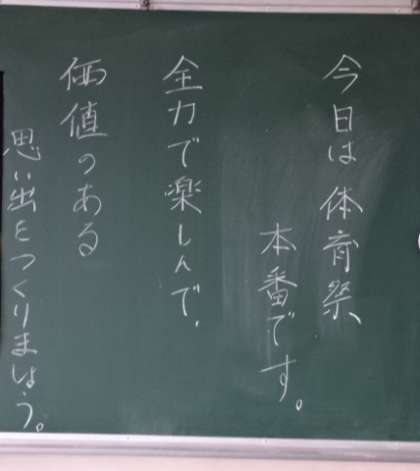 今日は体育祭
本番です。
全力で楽しんで、
価値のある
思い出をつくりましょう。